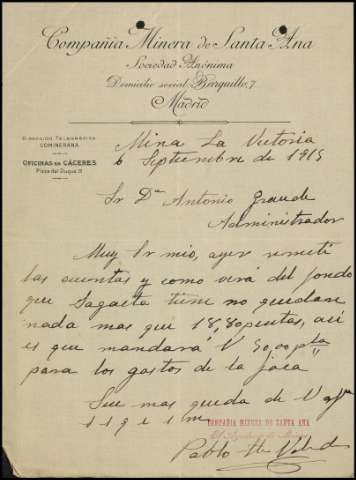 Compañía Minera de Santa Ana
Sociedad Anónima
Domicilio social, Barquillo, 7
Madrid
DIRECCIÓN TELEGRÁFICA
COMINERANA
OFICINAS EN CÁCERES
Plaza del Duque 11
Mina La Victoria
6 Septiembre de 1915
Sr Dn Antonio Grande
Administrador
Muy Sr mio, ayer remiti
las cuentas y como verá del fondo
que Sagasta tiene no quedan
nada mas que 18,80 pesetas, asi
es que mandará V 50,00 pta
para los gastos de la jaca
Sin mas queda de V
s s q e s m
COMPAÑIA MINERA DE SANTA ANA
Pablo